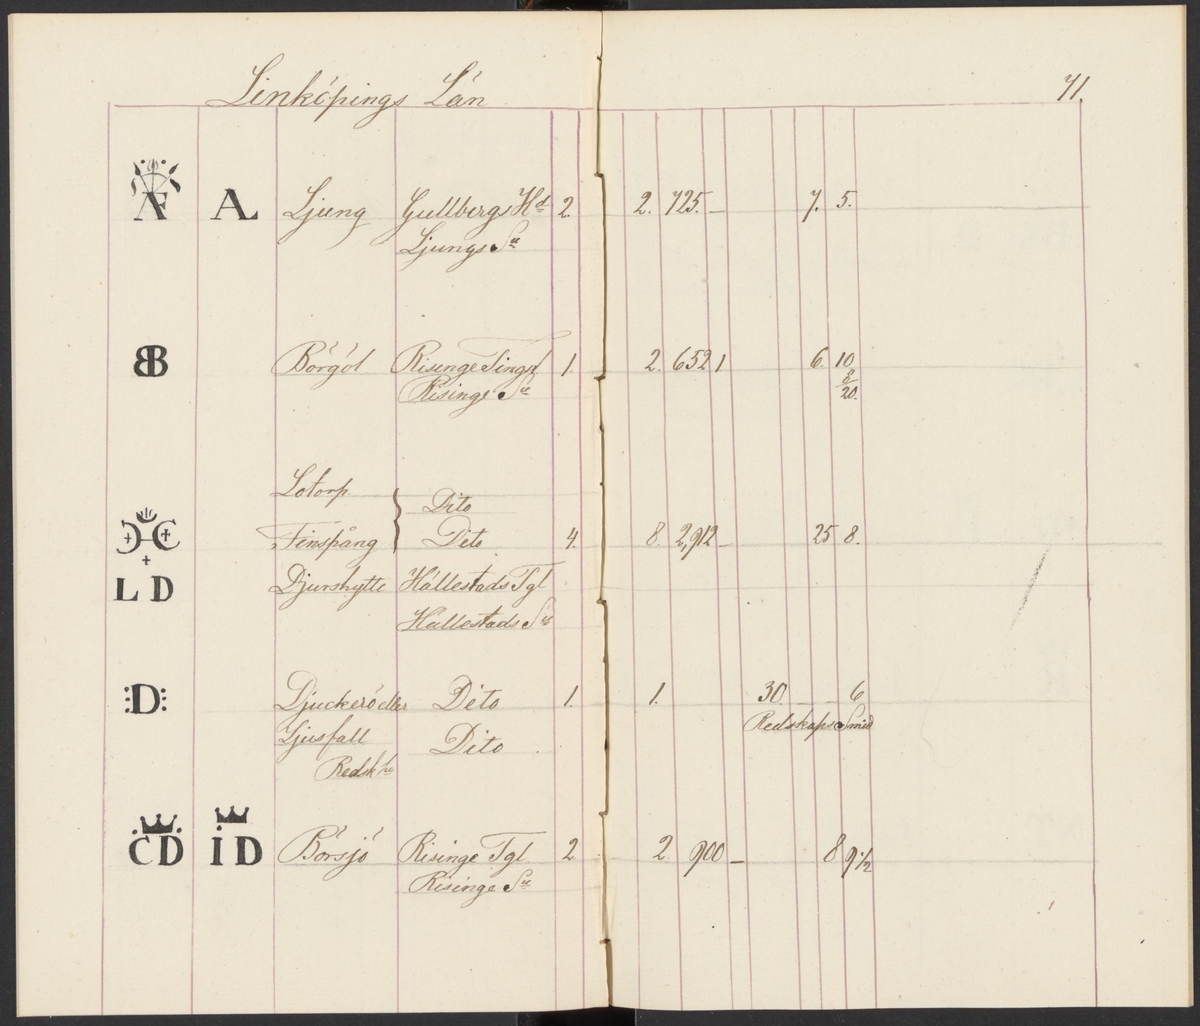 Linköpings Län 71.
A Ljung Gullbergs Hd 2. 2. 725. — 7. 5.
Ljungs Sn
BB Börgöl Risinge Tingsl 1. 2. 652 1 6. 10 8/20.
Risinge Sn
Lotorp. Dito
Finspång Dito 4. 8. 2,912 — 25 8.
L D Djurshytte Hällestads Tgl
Hällestads Sn
:D: Djuckerö eller Dito 1. 1. 30. — 6
Ljusfall Dito Redskaps Smid
Redsk
CD ID Börsjö Risinge Tgl 2 2. 900 — 8 9 1/2
Risinge Sn